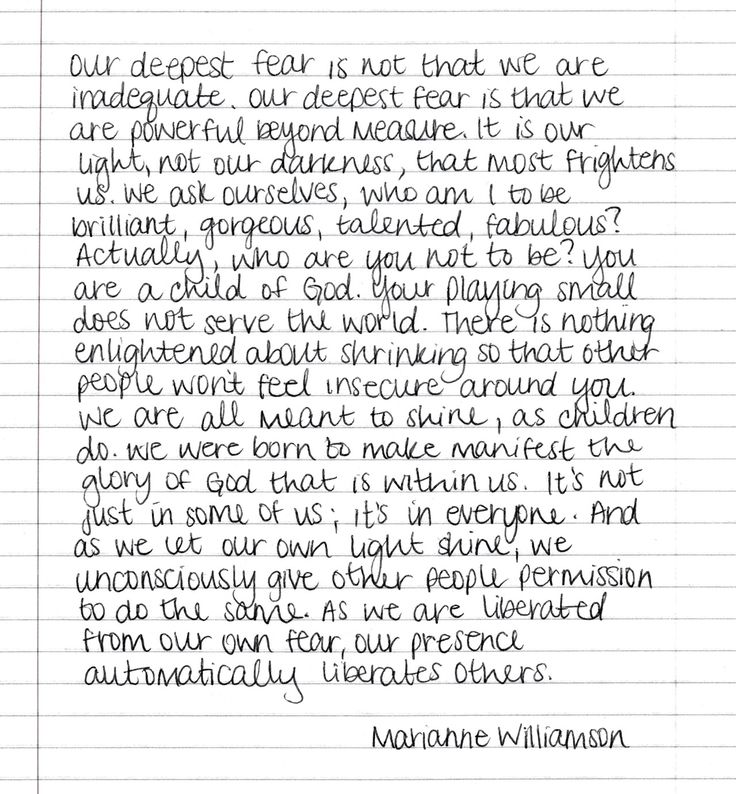 our deepest fear is not that we are
inadequate. our deepest fear is that we
are powerful beyond measure. It is our
light, not our darkness, that most frightens
us. we ask ourselves, who am I to be
brilliant, gorgeous, talented, fabulous?
Actually, who are you not to be? you
are a child of God. your playing small
does not serve the world. There is nothing
enlightened about shrinking so that other
people won't feel insecure around you.
we are all meant to shine, as children
do. we were born to make manifest the
glory of God that is within us. It's not
just in some of us; it's in everyone. And
as we let our own light shine, we
unconsciously give other people permission
to do the same. As we are liberated
from our own fear, our presence
automatically liberates others.
Marianne Williamson